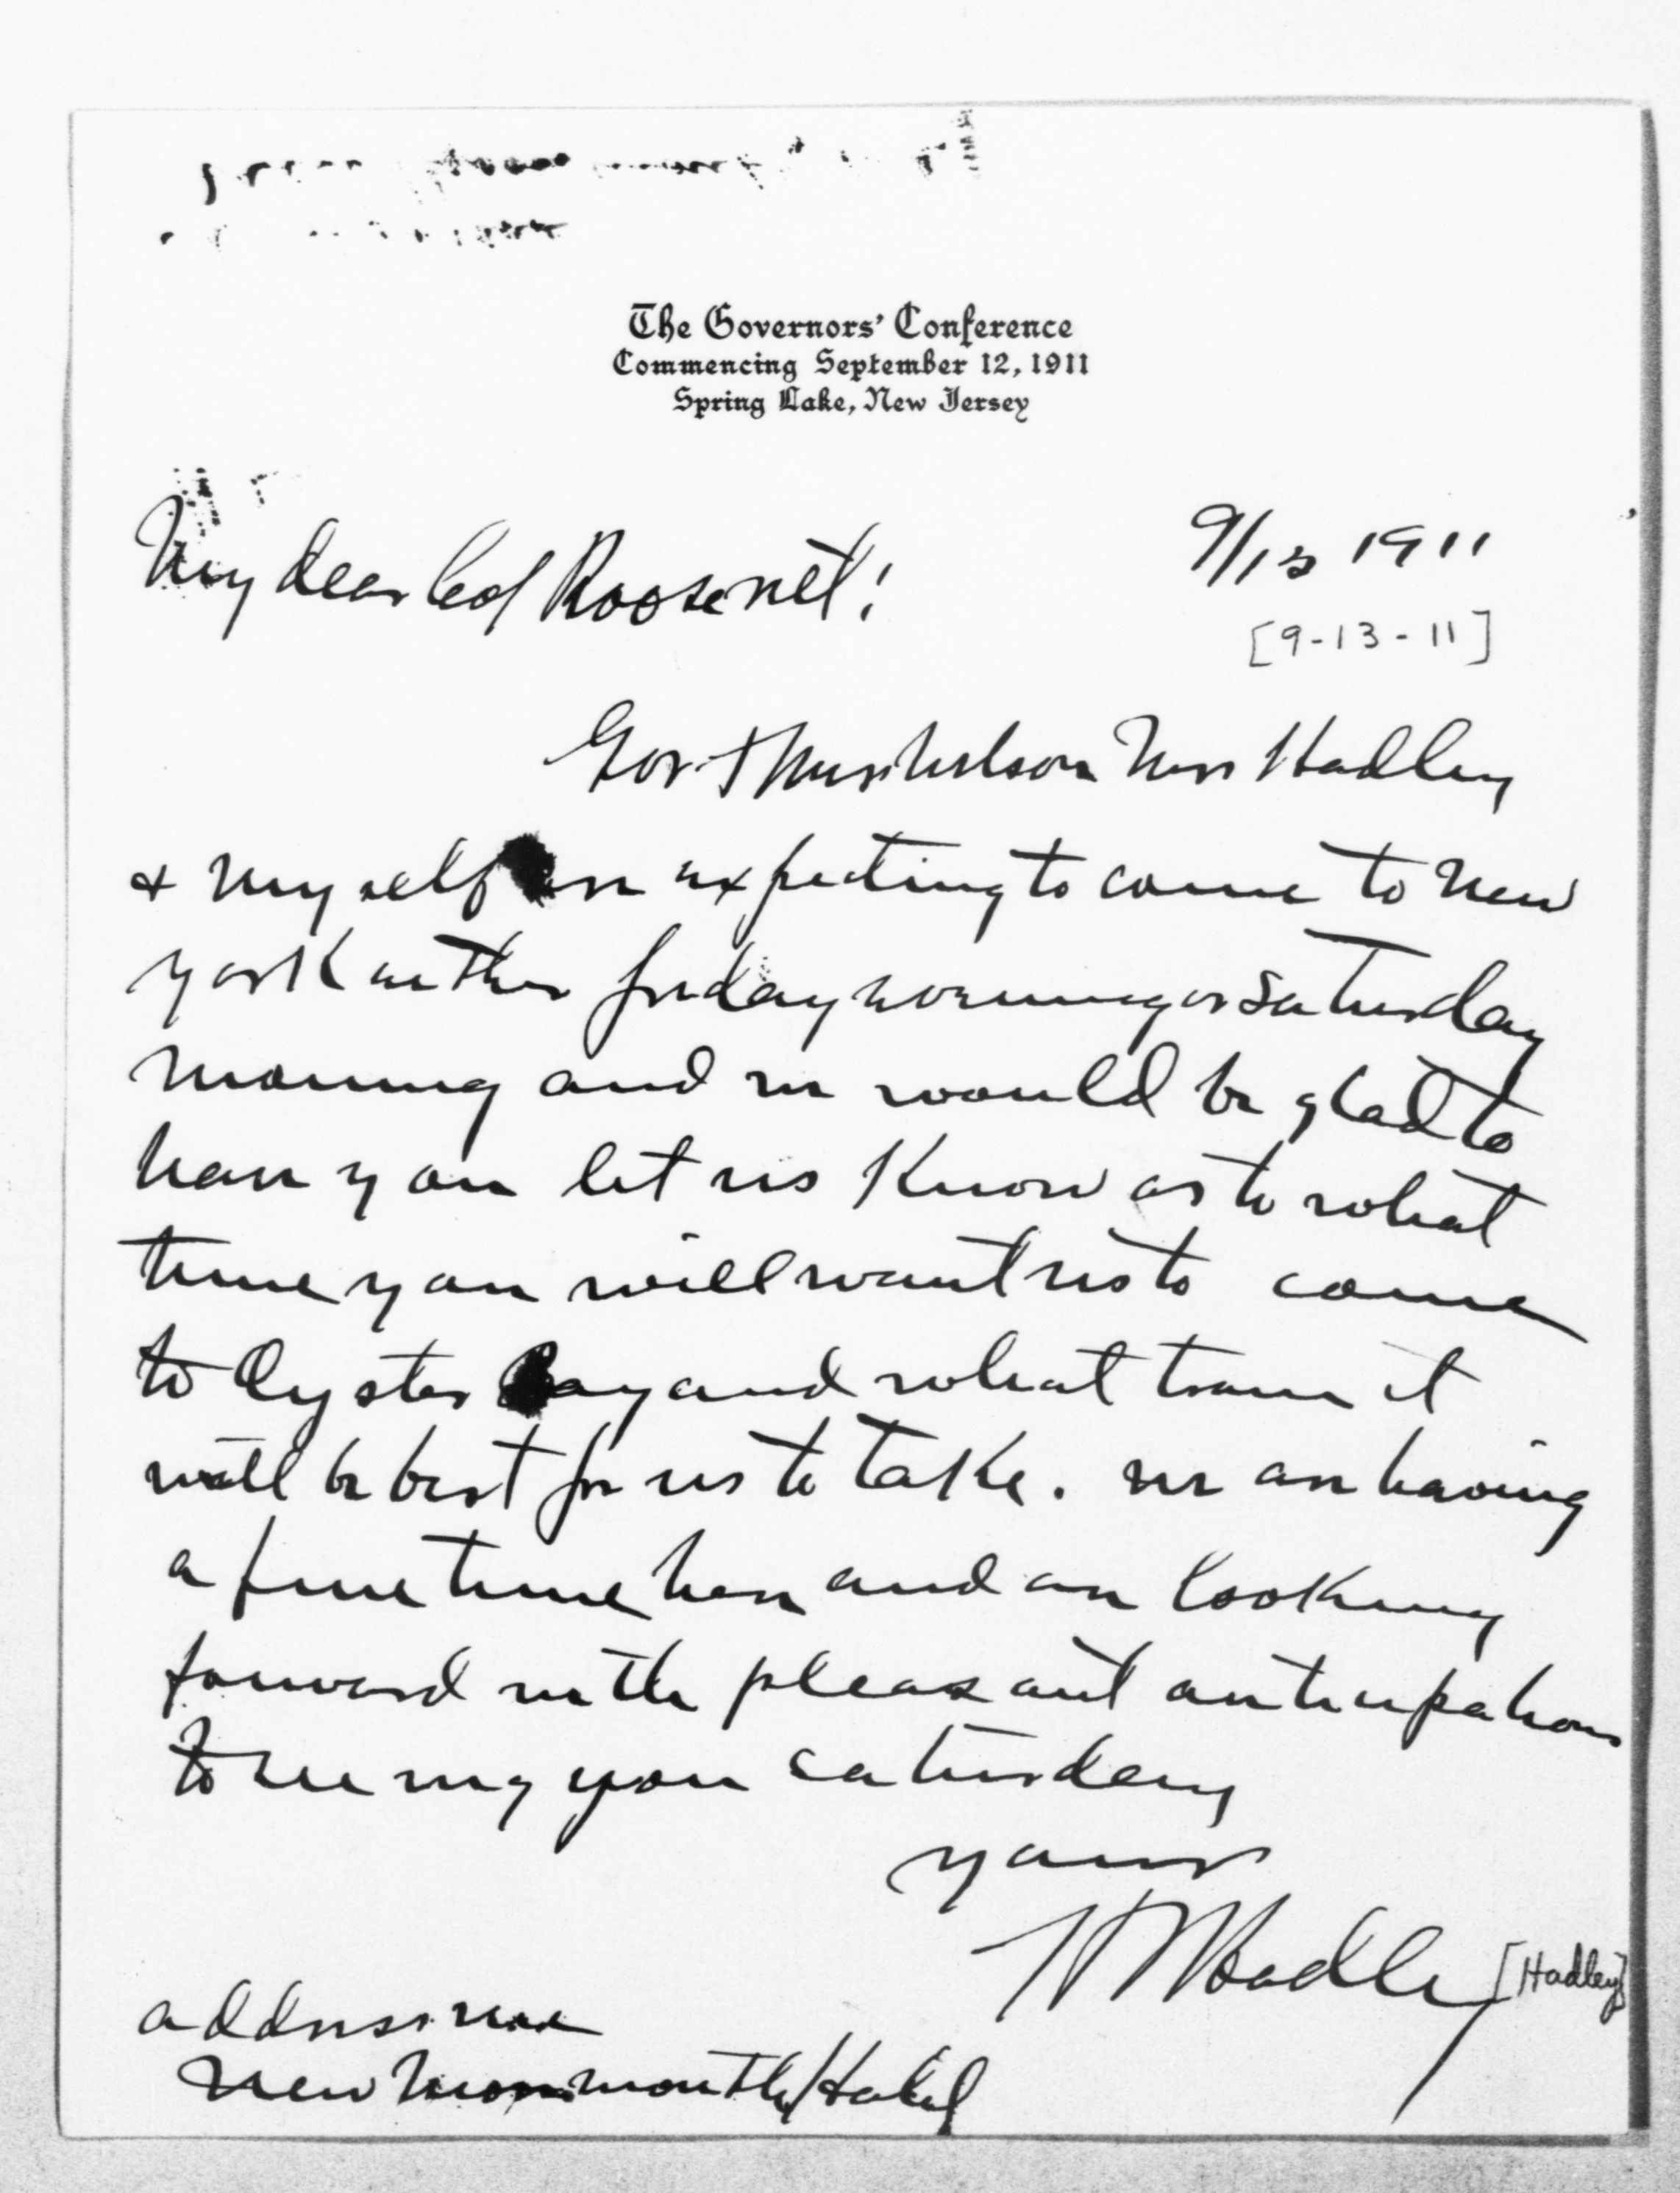 The Governors' Conference
Commencing September 12, 1911
Spring Lake, New Jersey
9/13 1911
[9-13-11]
My dear Col Roosevelt:
Gov & Mrs Mrs Hadley
& myself are expecting to come to New
York either Friday or Saturday
morning and we would be glad to
have you let us know as to what
time you will want us to come
to Oyster Bay and what train it
will be best for us to take. We are having
a fine time here and are looking
forward with pleasant anticipations
to seeing you Saturday
Yours
H S Hadley [Hadley]
address me
New Monmouth Hotel